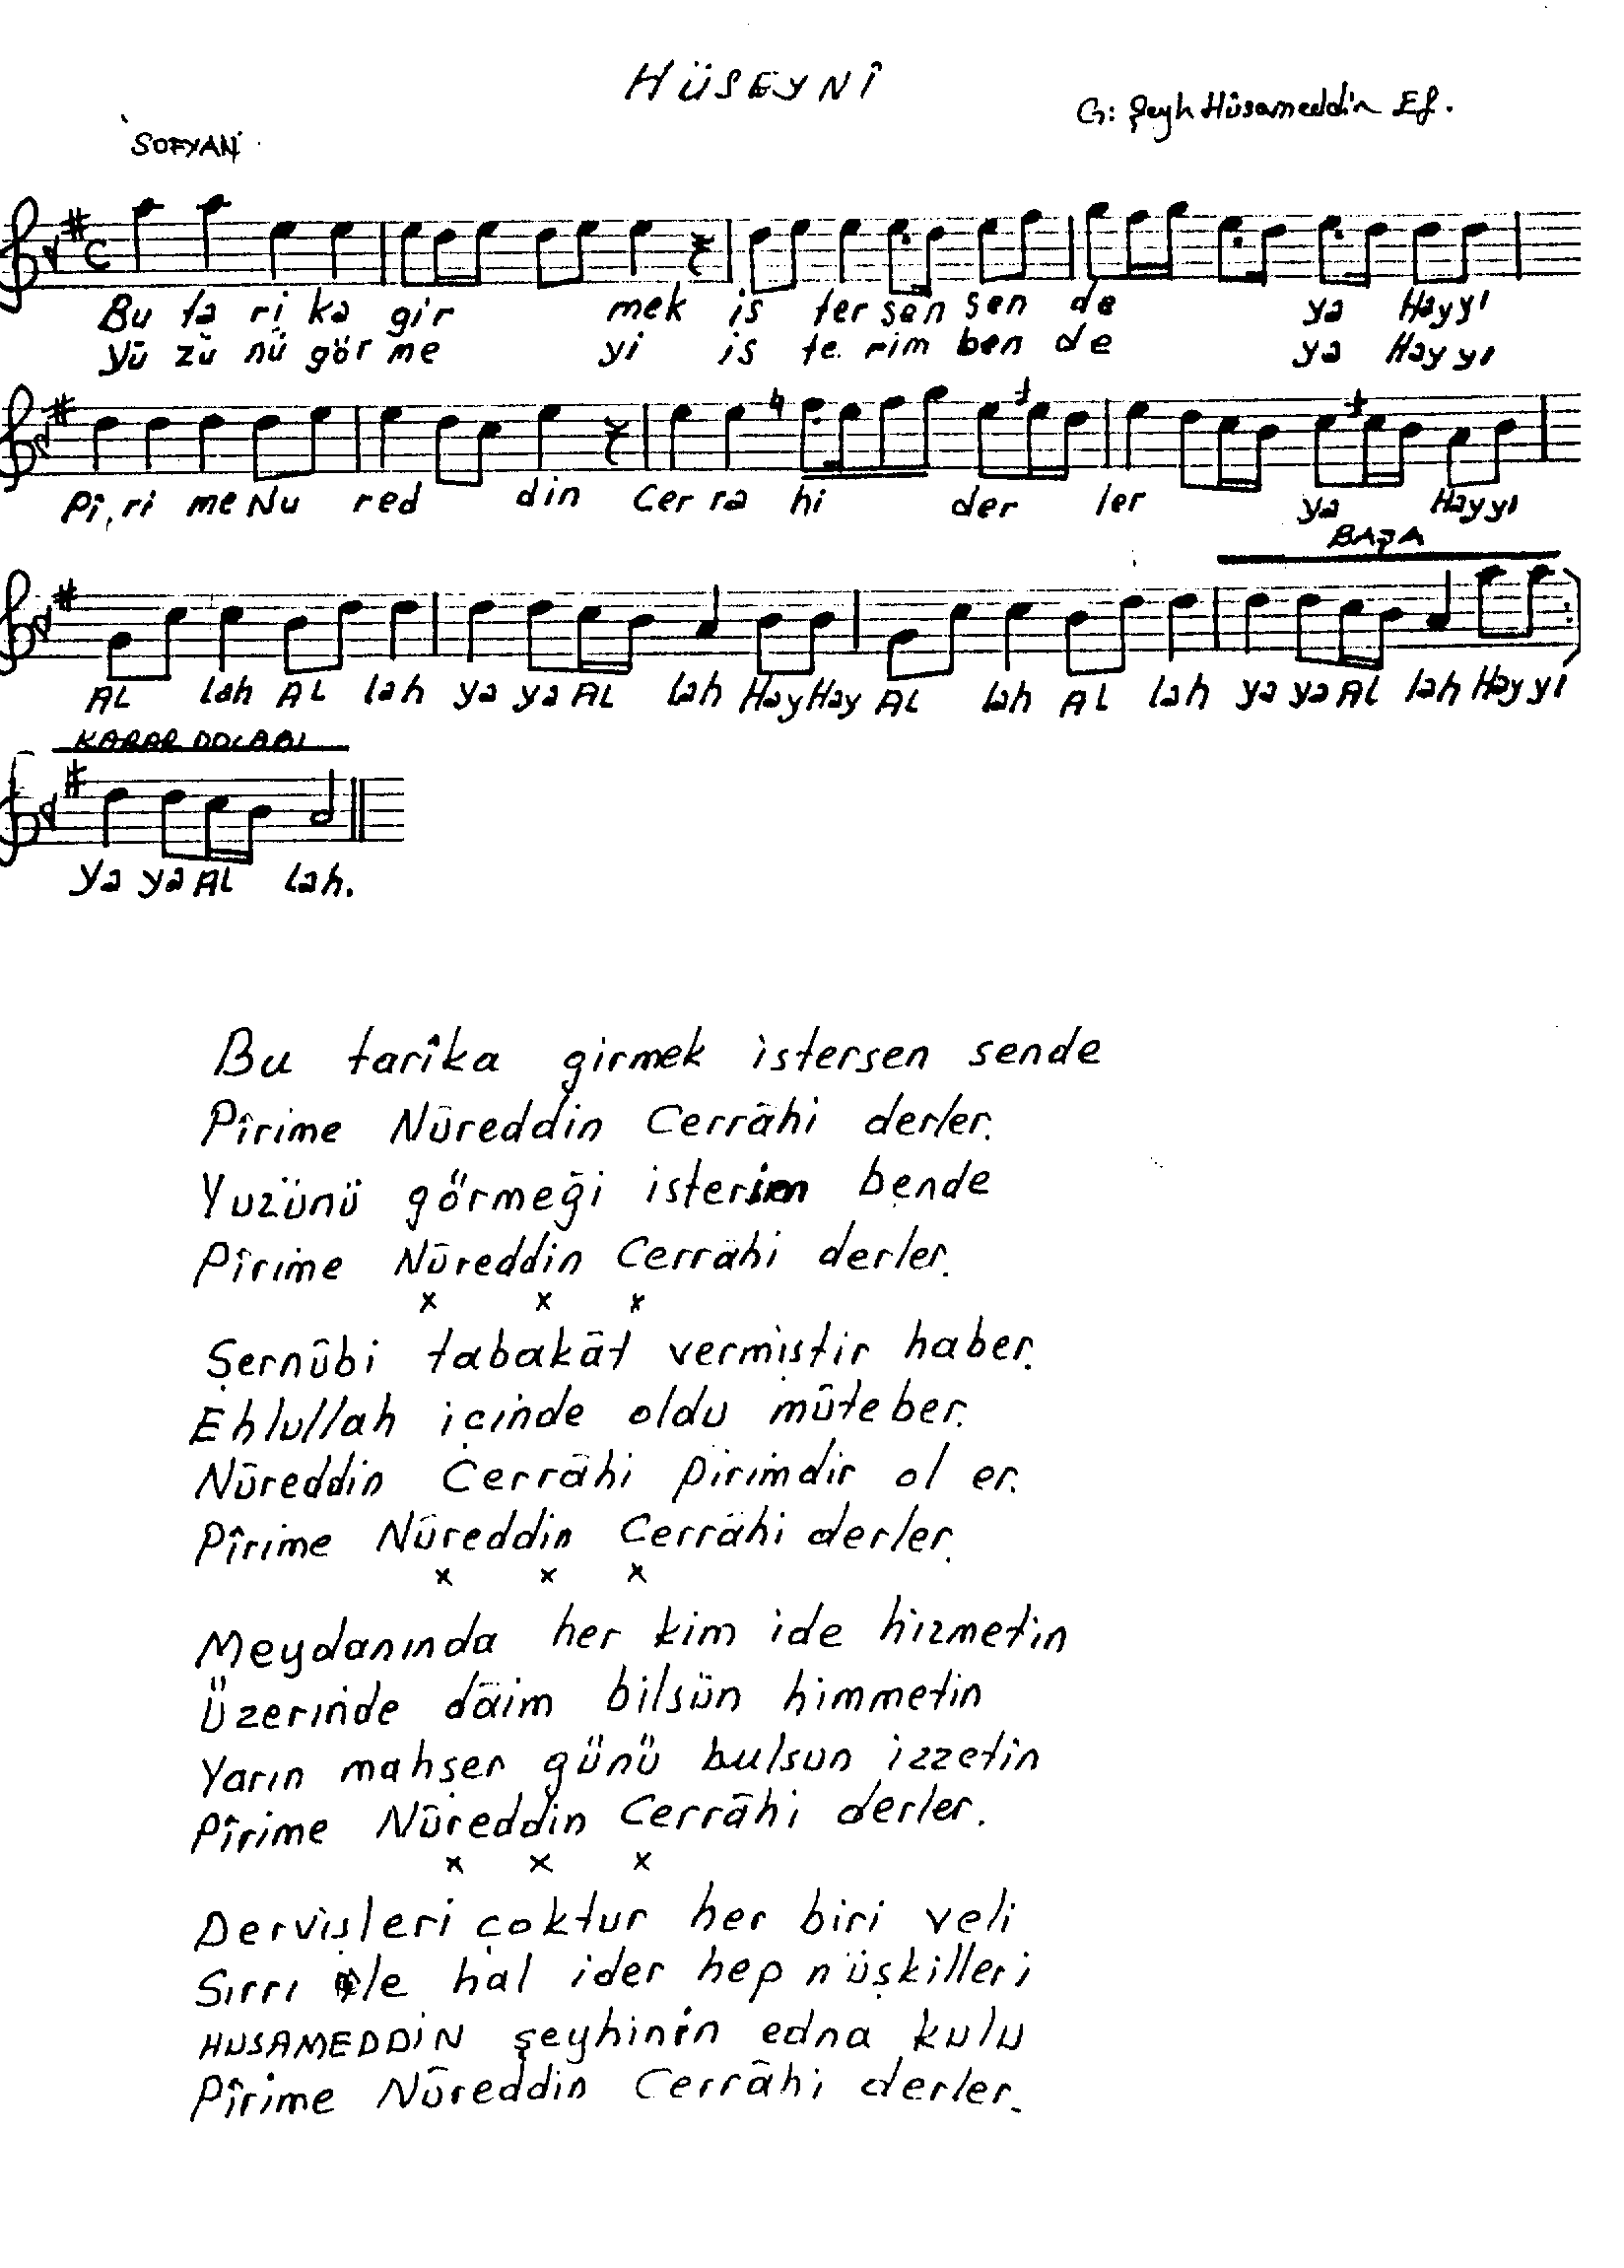 HÜSEYNÎ
G: Şeyh Hüsameddin Ef.
SOFYAN
Bu ta ri ka gir mek is ter sen sen de ya Hayyı
Yü zü nü gör me yi is te rim ben de ya Hayyı
Pî ri me Nu red din Cer ra hi der ler ya Hayyı
BAŞA
AL lah AL lah ya ya AL lah Hay Hay AL lah AL lah ya ya AL lah Hayyı
KARAR DOLABI
ya ya AL lah.
Bu tarîka girmek istersen sende
Pîrime Nûreddin Cerrâhi derler.
Yuzünü görmeği isterim bende
Pîrime Nûreddin Cerrâhi derler.
x x x
Şernûbi tabakât vermiştir haber.
Ehlullah içinde oldu mûteber.
Nûreddin Cerrâhi pirimdir ol er.
Pîrime Nûreddin Cerrâhi derler.
x x x
Meydanında her kim ide hizmetin
Üzerinde dâim bilsün himmetin
Yarın mahşer günü bulsun izzetin
Pîrime Nûreddin Cerrâhi derler.
x x x
Dervişleri çoktur her biri veli
Sırrı ile hal ider hep nüşkilleri
HUSAMEDDİN şeyhinin edna kulu
Pîrime Nûreddin Cerrâhi derler.